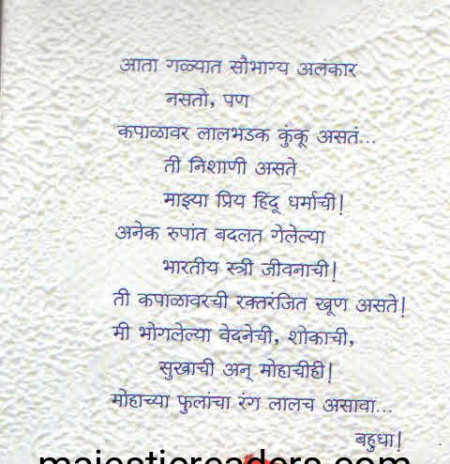 आता गळ्यात सौभाग्य अलंकार
नसतो, पण
कपाळावर लालभडक कुंकू असतं...
ती निशाणी असते
माझ्या प्रिय हिंदू धर्माची!
अनेक रुपांत बदलत गेलेल्या
भारतीय स्त्री जीवनाची!
ती कपाळावरची रक्तरंजित खूण असते!
मी भोगलेल्या वेदनेची, शोकाची,
सुखाची अन् मोहाचीही!
मोहाच्या फुलांचा रंग लालच असावा...
बहुधा!
majesticreaders.com